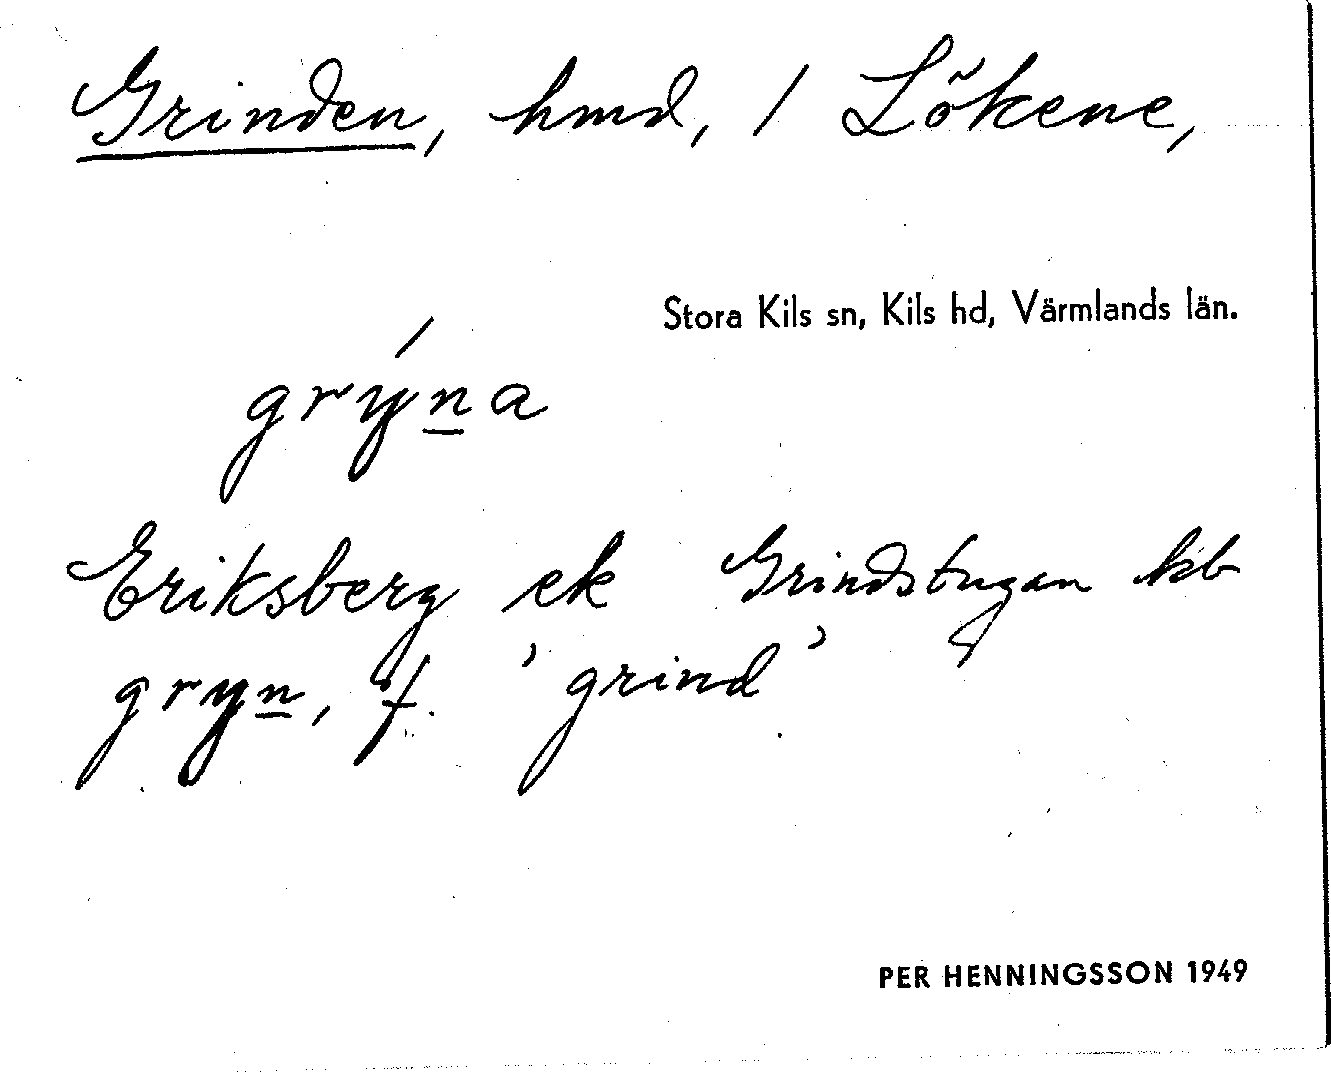 Grinden, hmd, / Lökene,
Stora Kils sn, Kils hd, Värmlands län.
grýna
Eriksberg ek Grindstugan kb
gryn, f. 'grind'
PER HENNINGSSON 1949